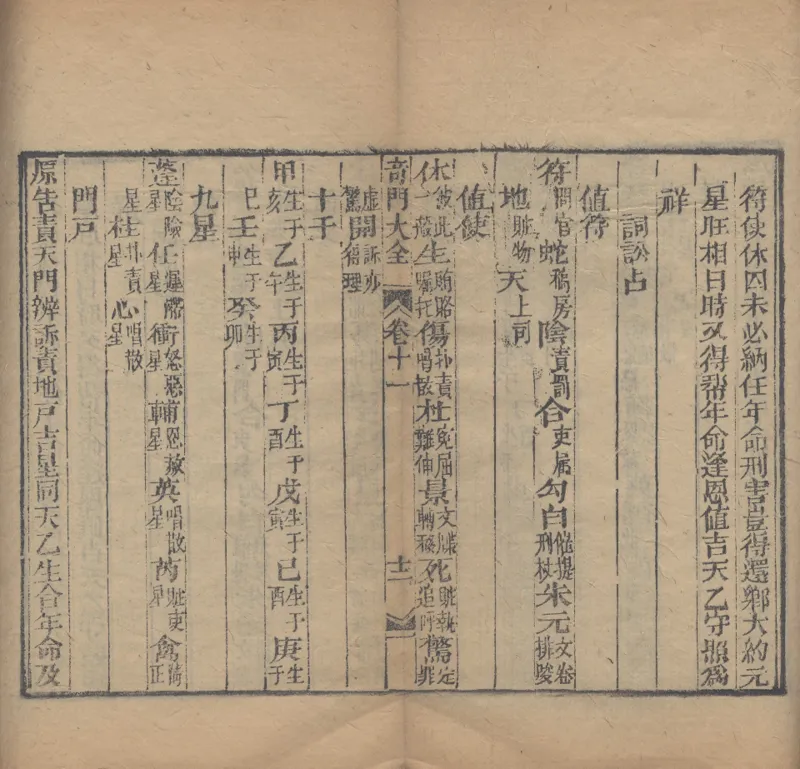 符使休囚未必納任年命刑害豈得還鄉大約元
星旺相日時又得幫年命逢恩值吉天乙守照為
祥
詞訟占
值符
符問官蛇獄房陰責罰合吏屬勾白催提刑杖朱元文卷排駁
地賍物天上司
值使
休彼此一般生賄賂囑托傷扑責唱散杜冤屈難伸景文牒轉移死賍執追呼驚定罪
奇門大全 卷十一 十二
虛驚開訴亦得理
十干
甲生于亥乙生于午丙生于寅丁生于酉戊生于寅己生于酉庚生于
巳壬生于申癸生于卯
九星
蓬陰險星任遲滯星衝怒惡星輔恩赦星英唱散星芮賍吏星禽清正
星柱扑責星心唱散星
門戶
原告責天門辨訴責地戶吉星同天乙生合年命及